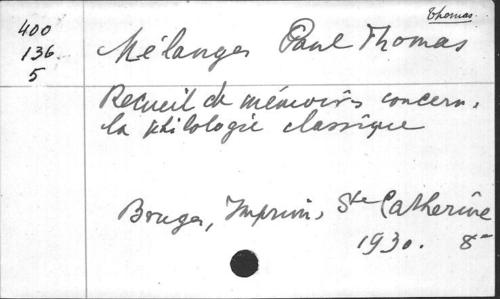 Thomas
400
136
5
Mélanges Paul Thomas
Recueil de mémoires concern.
la philologie classique
Bruges, Imprim. Ste Catherine
1930. 8°